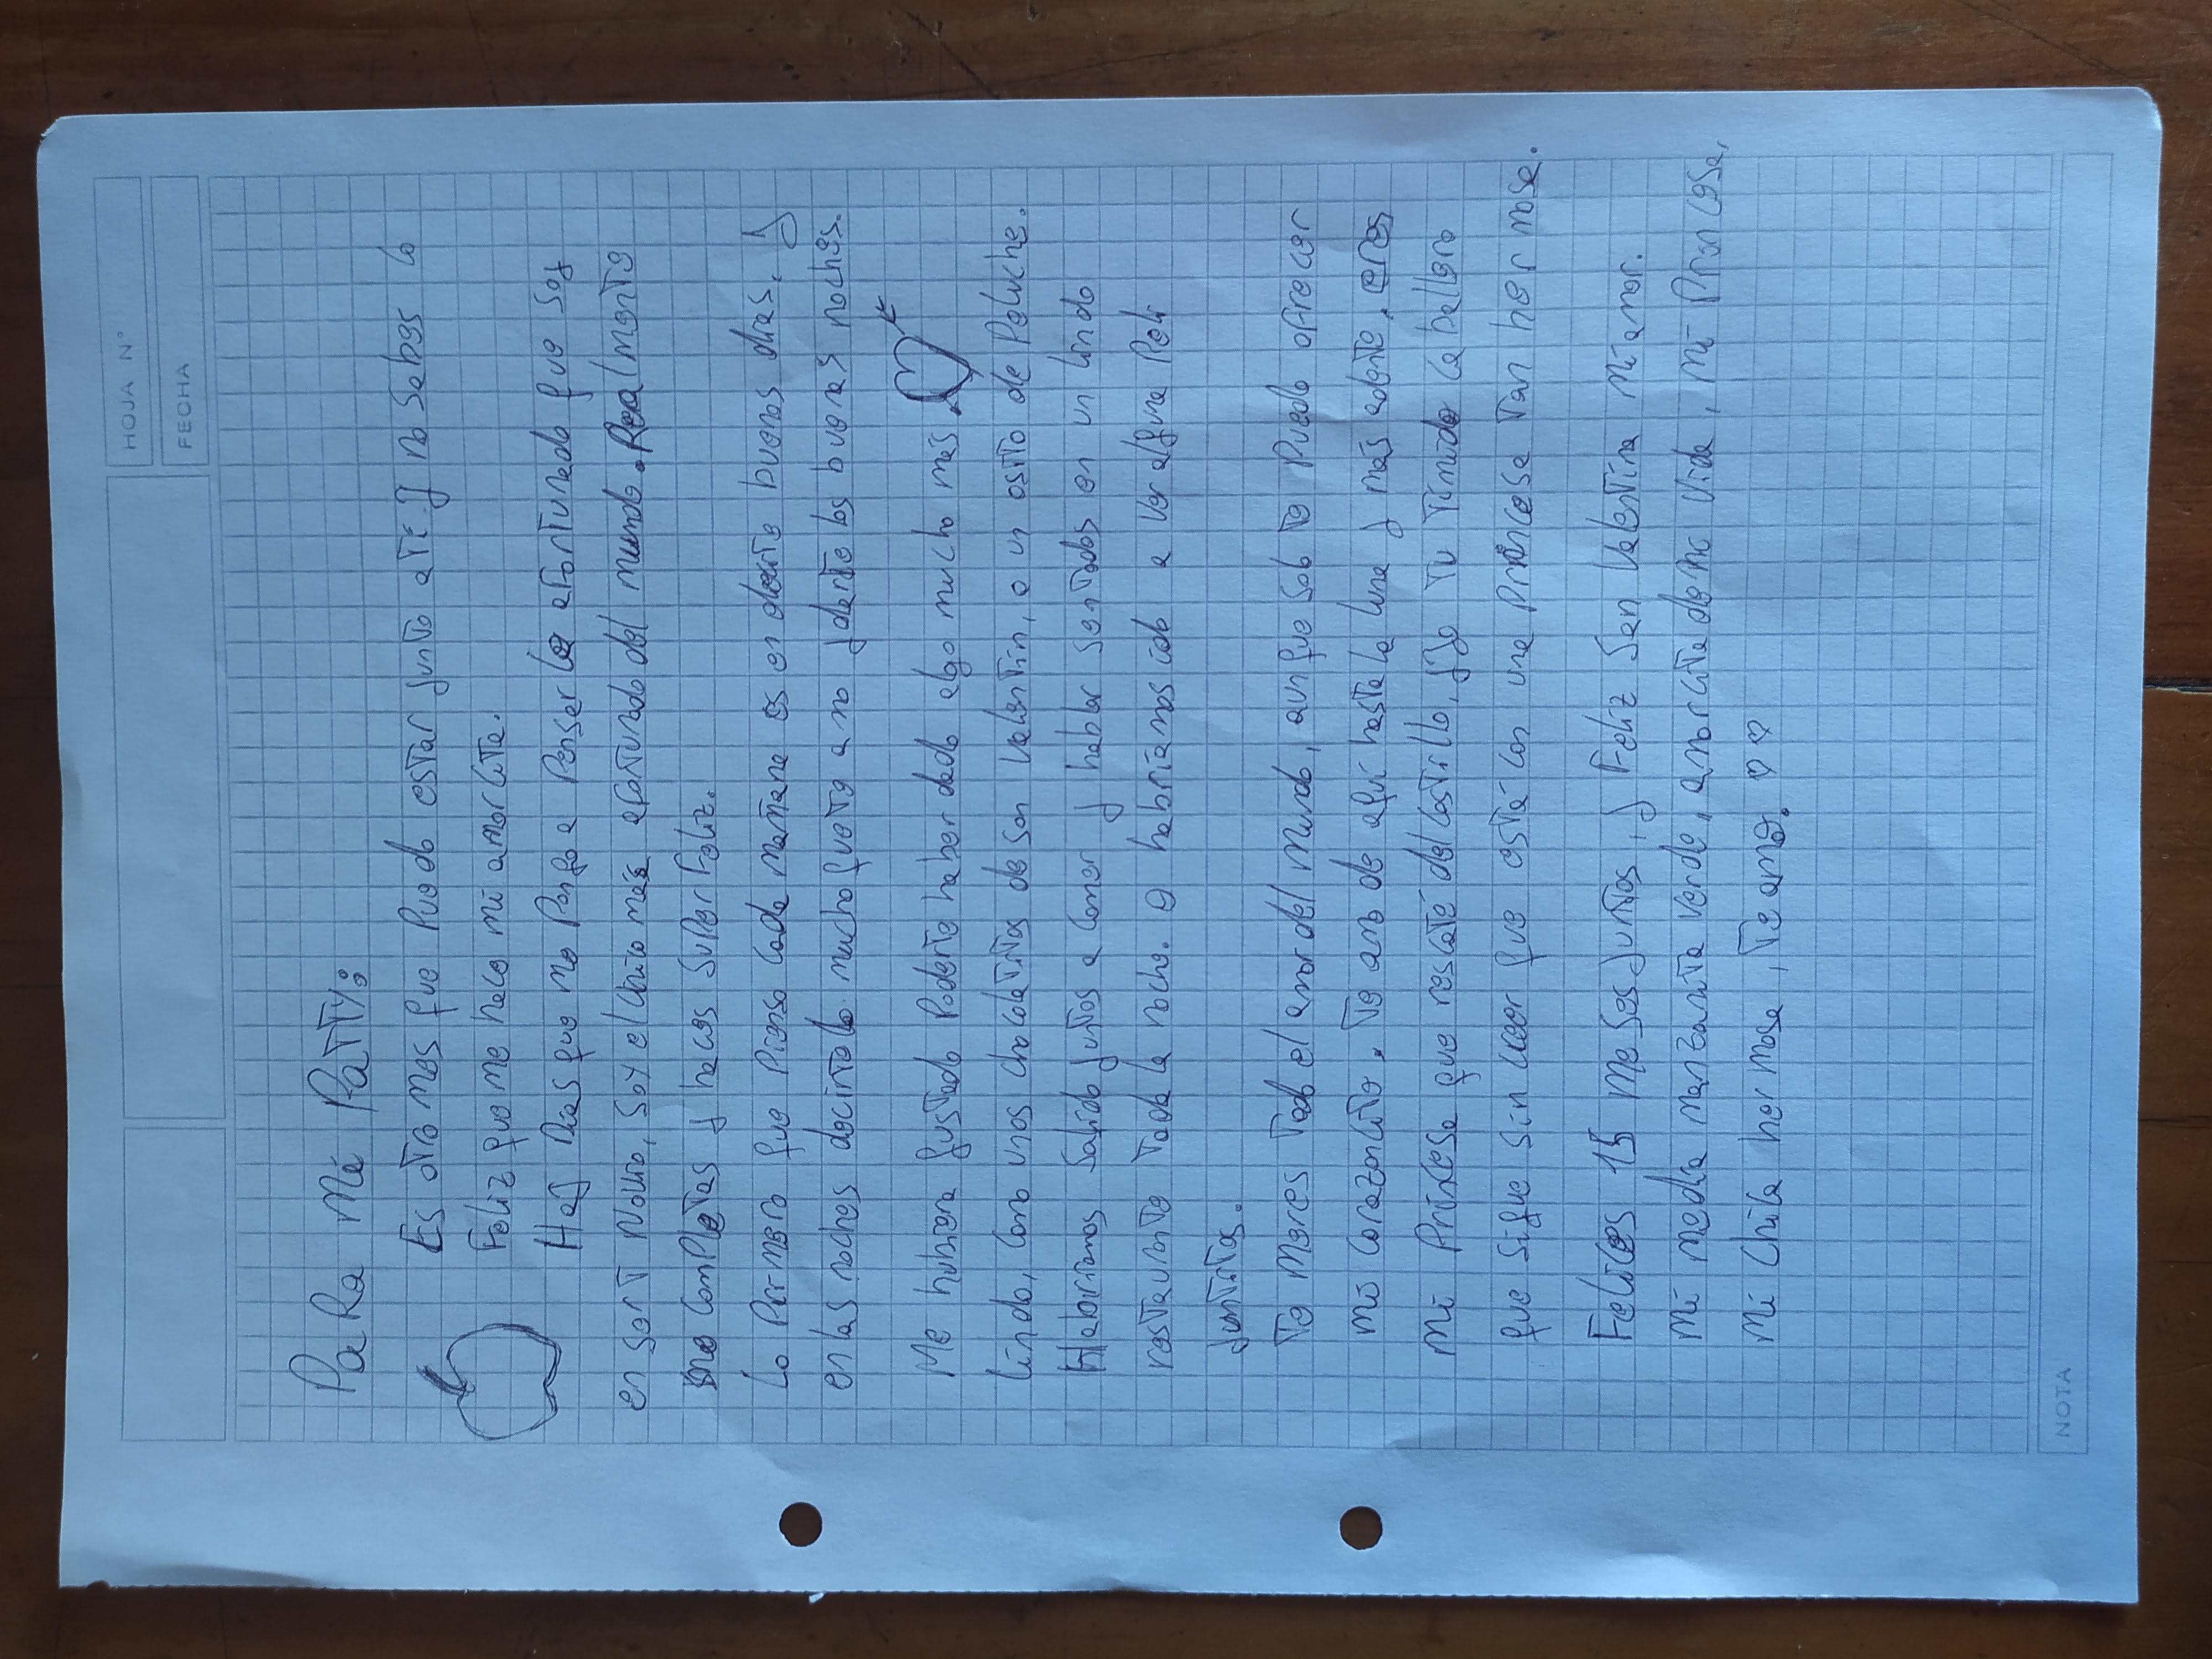 HOJA N°
FECHA
PaRa Mi PaTTy:
Es otro mes que Puedo estar junto a Ti y no sabes lo
Feliz que me hace mi amorcita.
Hay Dias que me Pongo a Pensar lo afortunado que soy
en ser T Novio, soy el chico más afortunado del mundo. Realmente
me completas y haces super Feliz.
Lo Primero que Pienso cada mañana es en decirte buenos dias, y
en las noches decirtelo mucho que te amo y darte las buenas noches.
Me hubiera gustado Poderte haber dado algo mucho más
lindo, como unos chocolatitos de san Valentin, o un osito de Peluche.
Habriamos salido juntos a comer y haber sentados en un lindo
restaurante Toda la noche. O habríamos ido a ver alguna Peli
juntitos.
Te Mereces Todo el amor del Mundo, aunque solo te Puedo ofrecer
mi corazoncito. Te amo de aquí hasta la luna y más adente, eres
Mi Princesa que rescaté del castillo, y yo Tu Timido caballero
que sigue sin creer que esté con una Princesa Tan hermosa.
Felices 15 meses juntos, y Feliz San Valentina mi amor.
Mi media manzanita verde, amorcita de mi vida, mi Princesa,
Mi Chica hermosa, Te amo. ♡ ♡
NOTA